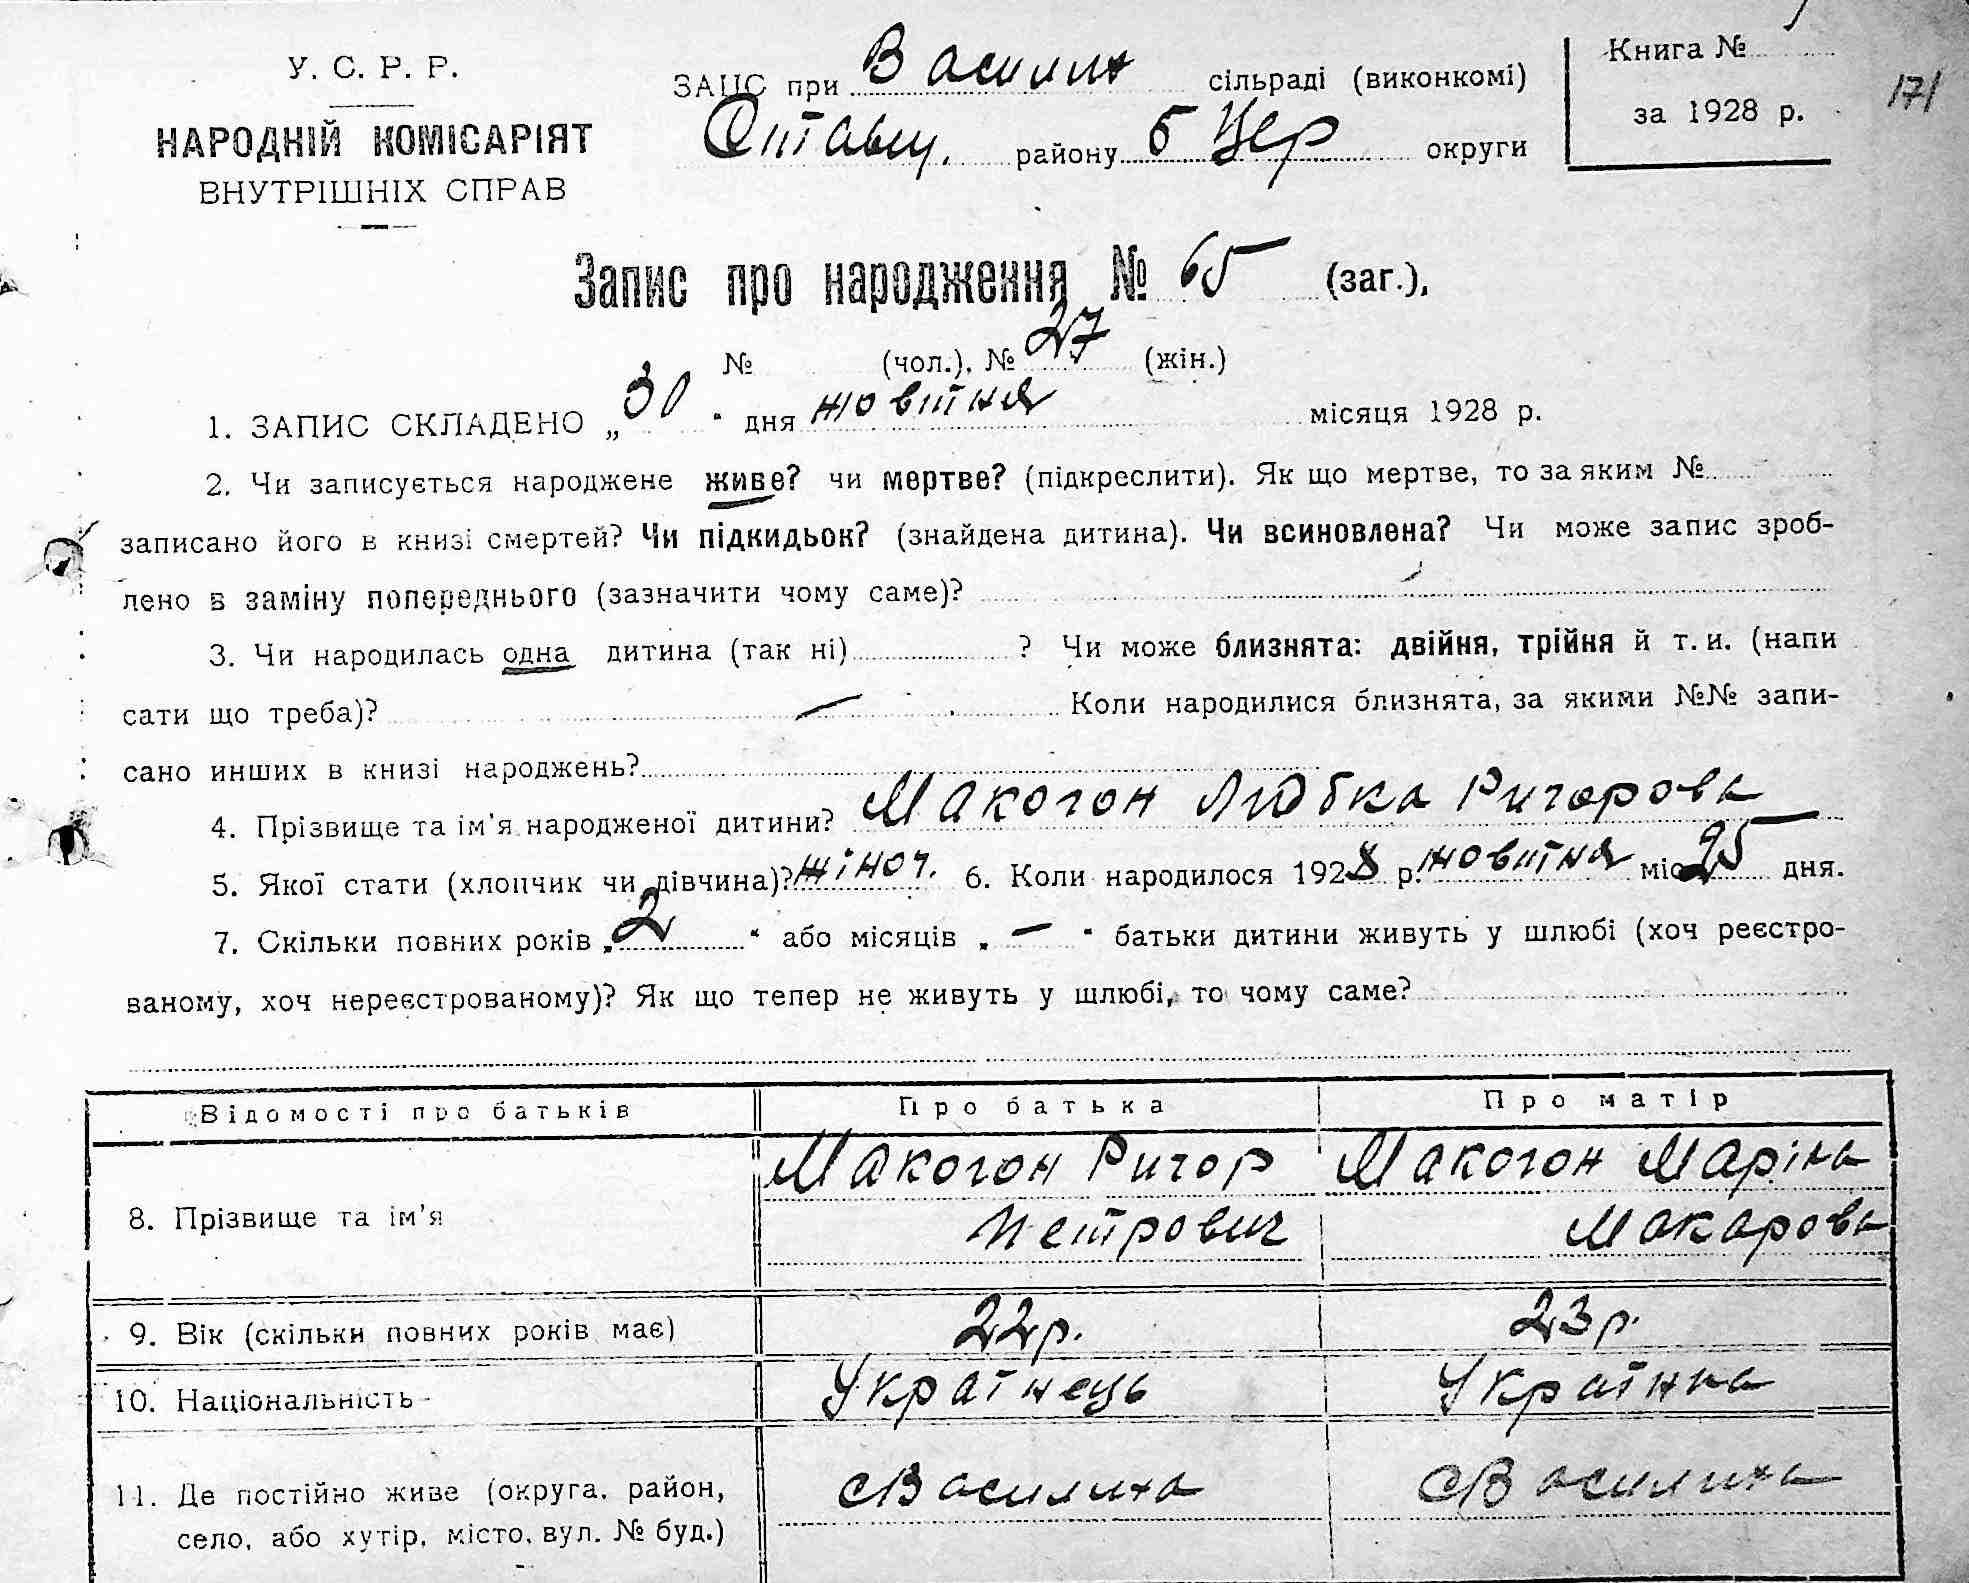 У. С. Р. Р.
НАРОДНІЙ КОМІСАРІЯТ
ВНУТРІШНІХ СПРАВ
ЗАГС при Васили сільраді (виконкомі)
району Б Цер округи
Книга №
за 1928 р.
171
Запис про народження № 65 (заг.),
№ (чол.), № 27 (жін.)
1. ЗАПИС СКЛАДЕНО „ 30 " дня жовтня місяця 1928 р.
2. Чи записується народжене живе? чи мертве? (підкреслити). Як що мертве, то за яким №
записано його в книзі смертей? Чи підкидьок? (знайдена дитина). Чи всиновлена? Чи може запис зроб-
лено в заміну попереднього (зазначити чому саме)?
3. Чи народилась одна дитина (так ні) ? Чи може близнята: двійня, трійня й т. и. (напи
сати що треба)? — Коли народилися близнята, за якими №№ запи-
сано инших в книзі народжень?
4. Прізвище та ім'я народженої дитини? Макогон Любка Ригорова
5. Якої стати (хлопчик чи дівчина)? жіноч. 6. Коли народилося 1928 р. жовтня міс 25 дня.
7. Скільки повних років „ 2 " або місяців „ — " батьки дитини живуть у шлюбі (хоч реєстро-
ваному, хоч нереєстрованому)? Як що тепер не живуть у шлюбі, то чому саме?
Відомості про батьків Про батька Про матір
8. Прізвище та ім'я Макогон Ригор Петрович Макогон Маріна Макарова
9. Вік (скільки повних років має) 22 р. 23 р.
10. Національність Українець Українка
11. Де постійно живе (округа, район, с Василиха с Василиха
село, або хутір, місто, вул. № буд.)